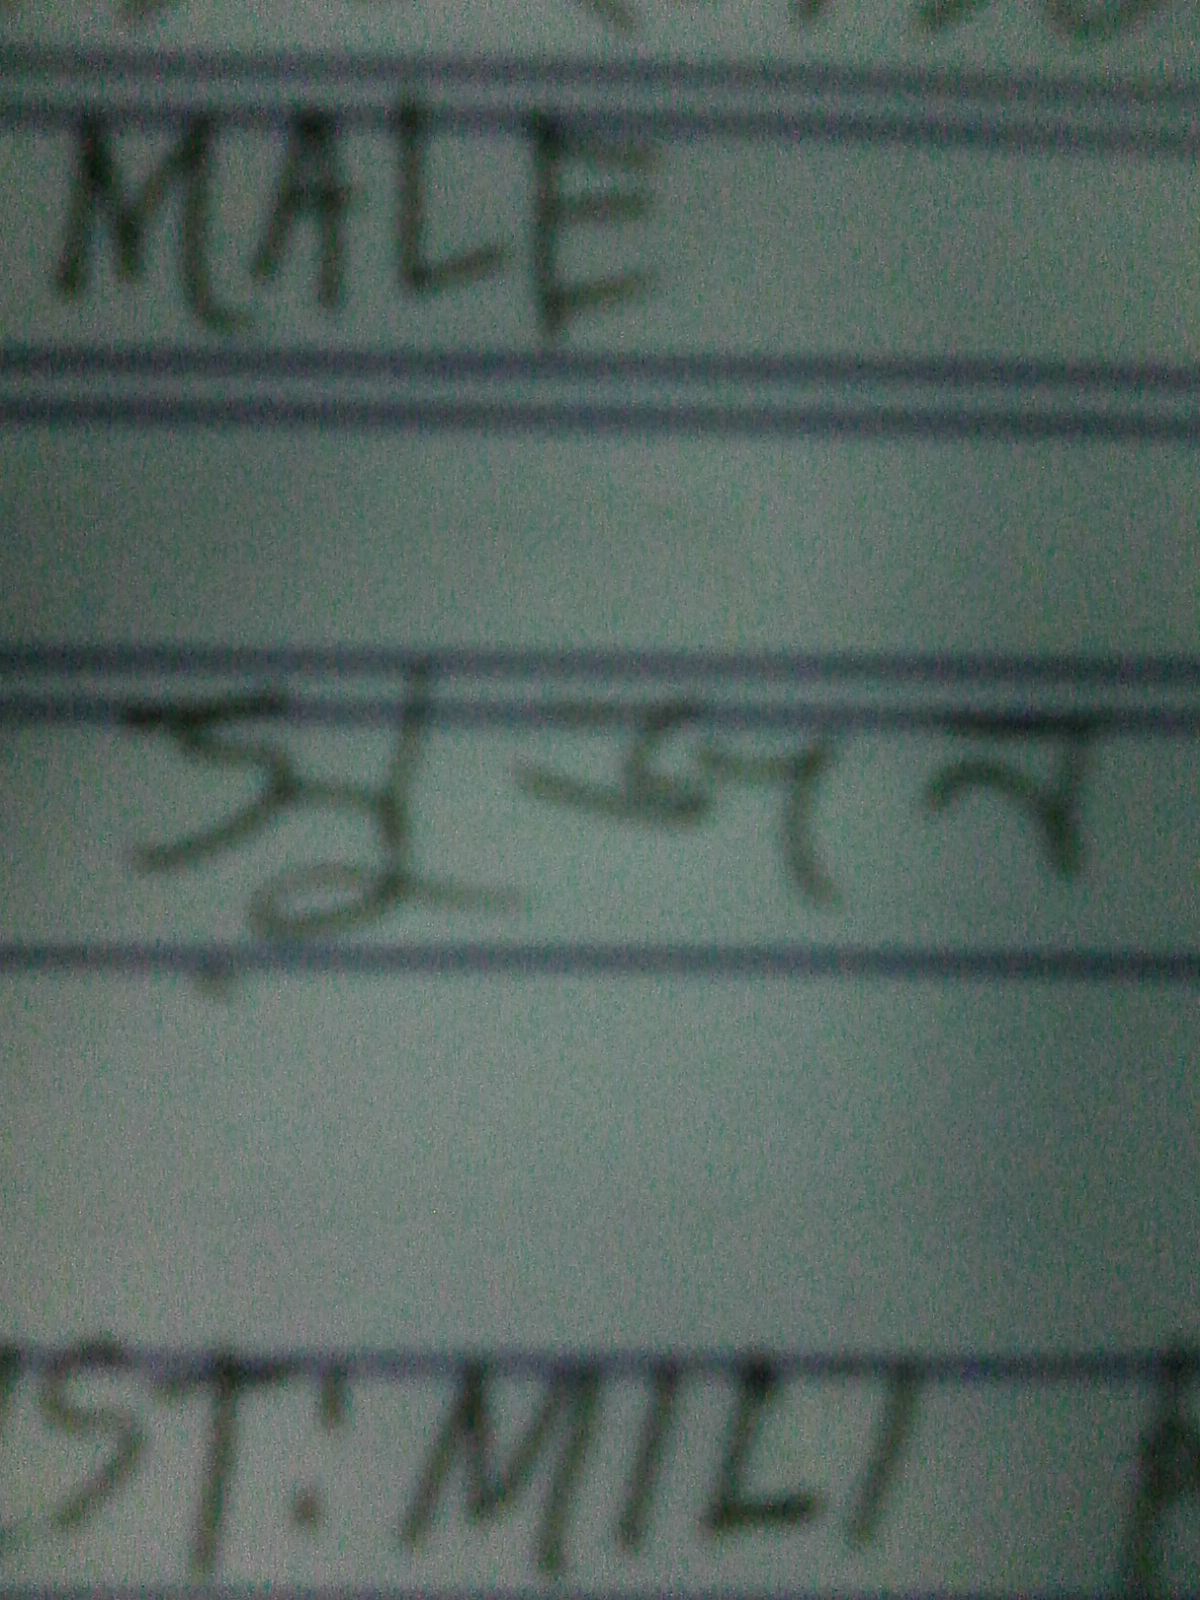 MALE
সুজন
ST: MILI